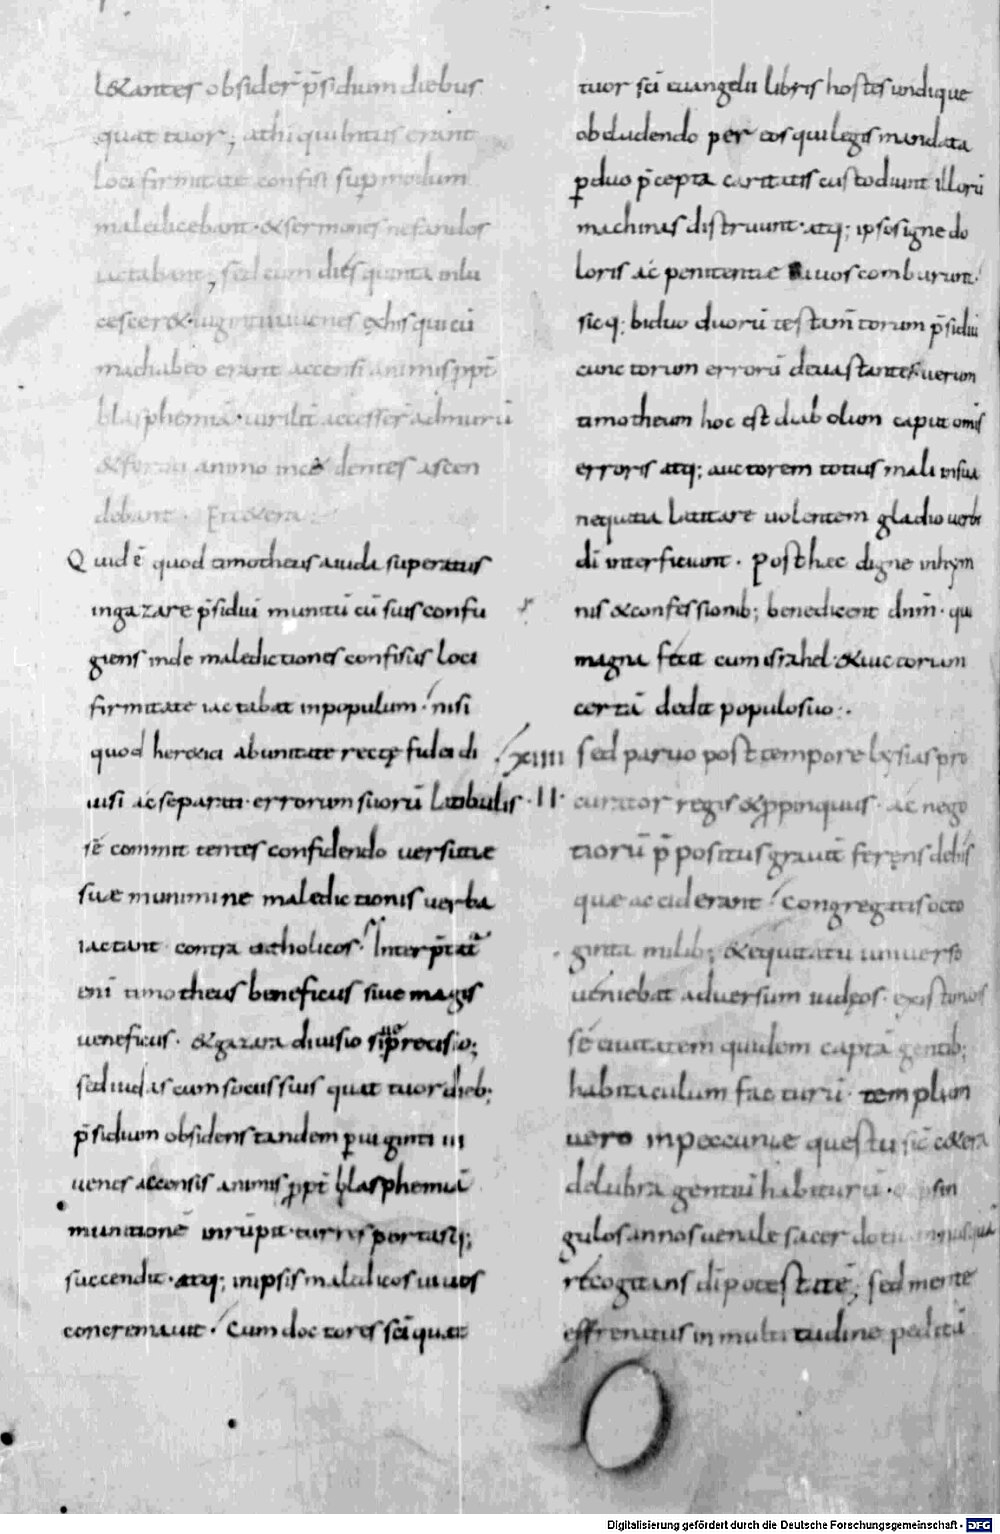 l&antes obsider̄ p̄sidium diebus
quat tuor; at hi qui intus erant
loci firmitate confisi sup̱ modum
maledicebant · & sermones nefandos
iactabant; sed cum dies quinta inlu
cescer& · uiginti iuuenes ex his qui cū
machabeo erant accensi animis ꝓpt̄
blasphemiā · uirilit̄ accesser̄ ad murū
& feroci animo incedentes ascen
debant · Et c&era :
Quid ē quod timotheus a iuda superatus
in gazare p̄sidiū munitū cū suis confu
giens inde maledictiones confisus loci
firmitate iactabat in populum · nisi
quod her&ici ab unitate rectę fidei di
uisi ac separati · errorum suorū latibulis
sē committentes confidendo uersutiae
suae munimine maledictionis uerba
iactant contra catholicos · Interp̄tat̄
eni timotheus beneficus siue magis
ueneficus · & gazara diuisio siue p̄recisio;
sed iudas cum sociis suis quattuor dieb;
p̄sidium obsidens tandem ꝑ uiginti iu
uenes accensis animis ꝓpt̄ blasphemiā
munitionē inrūpit · turris portasq;
succendit · atq; in ipsis maledicos uiuos
concremauit · Cum doctores sc̄i quat
tuor sc̄i euangelii libris hostes undique
obcludendo per eos qui legis mandata
ꝑ duo p̄cepta caritatis custodiunt illorū
machinas distruunt · atq; ipsos igne do
loris ac penitentiae uiuos comburunt ·
sicq; biduo duorū testam̄torum p̄sidiū
cunctorum errorū deuastantes uerum
timotheum hoc est diabolum caput omīs
erroris atq; auctorem totius mali in sua
nequitia latitare uolentem gladio uerbi
dī interficiunt · Post haec digne in hym
nis & confessionib; benedicent dn̄m · qui
magna fecit cum israhel · & uictoriam
certā dedit populo suo :.
lxiiii sed paruo post tempore lysias pro
· II · curator regis & ꝓpinquus · ac nego
tiorū p̄positus grauit̄ ferens de his
quae acciderant · Congregatis octo
ginta milib; & equitatu uniuerso
ueniebat aduersum iudęos · existimās
sē ciuitatem quidem captā gentib;
habitaculum facturū · templum
uero in peccuniae questū sic c&era
delubra gentiū habiturū · & ꝑ sin
gulos annos uenale sacerdotiū
recogitans dī potestatē; sed mente
effrenatus in multitudine peditū
Digitalisierung gefördert durch die Deutsche Forschungsgemeinschaft - DFG